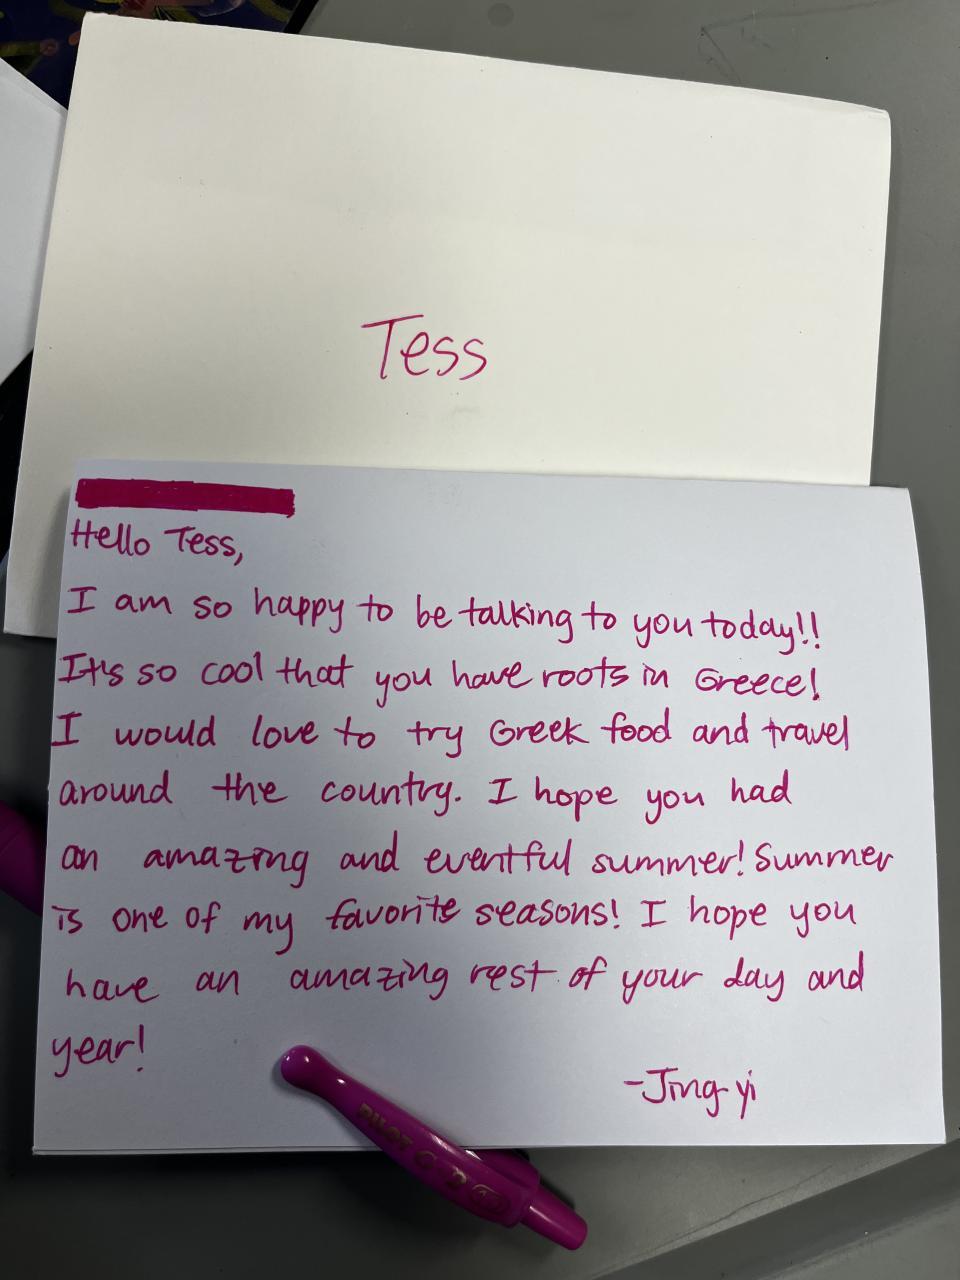 Tess
Hello Tess,
I am so happy to be talking to you today!!
It's so cool that you have roots in Greece!
I would love to try Greek food and travel
around the country. I hope you had
an amazing and eventful summer! Summer
is one of my favorite seasons! I hope you
have an amazing rest of your day and
year!
-Jing yi
PILOT G-2